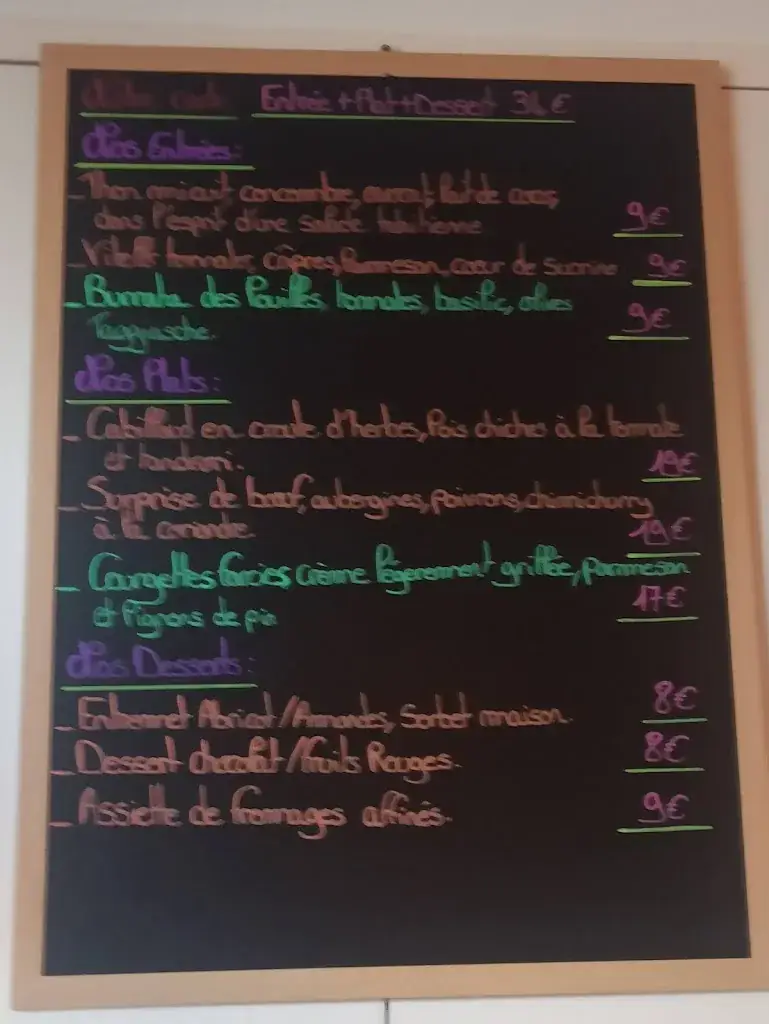 Notre carte Entrée + Plat + Dessert 34 €
Nos Entrées:
_ Thon mi cuit, concombre, avocat, lait de coco,
dans l'esprit d'une salade tahitienne 9€
_ Vitello tonnato, câpres, Parmesan, cœur de sucrine 9€
_ Burrata des Pouilles, tomates, basilic, olives
Taggiasche. 9€
Nos Plats:
_ Cabillaud en croute d'herbes, Pois chiches à la tomate
et tandoori. 19€
_ Surprise de bœuf, aubergines, poivrons, chimichurry
à la coriandre 19€
_ Courgettes farcies crème légèrement grillée, parmesan
et Pignons de pin 17€
Nos Desserts:
_ Entremet Abricot/Amandes, Sorbet maison. 8€
_ Dessert chocolat/fruits Rouges. 8€
_ Assiette de fromages affinés. 9€